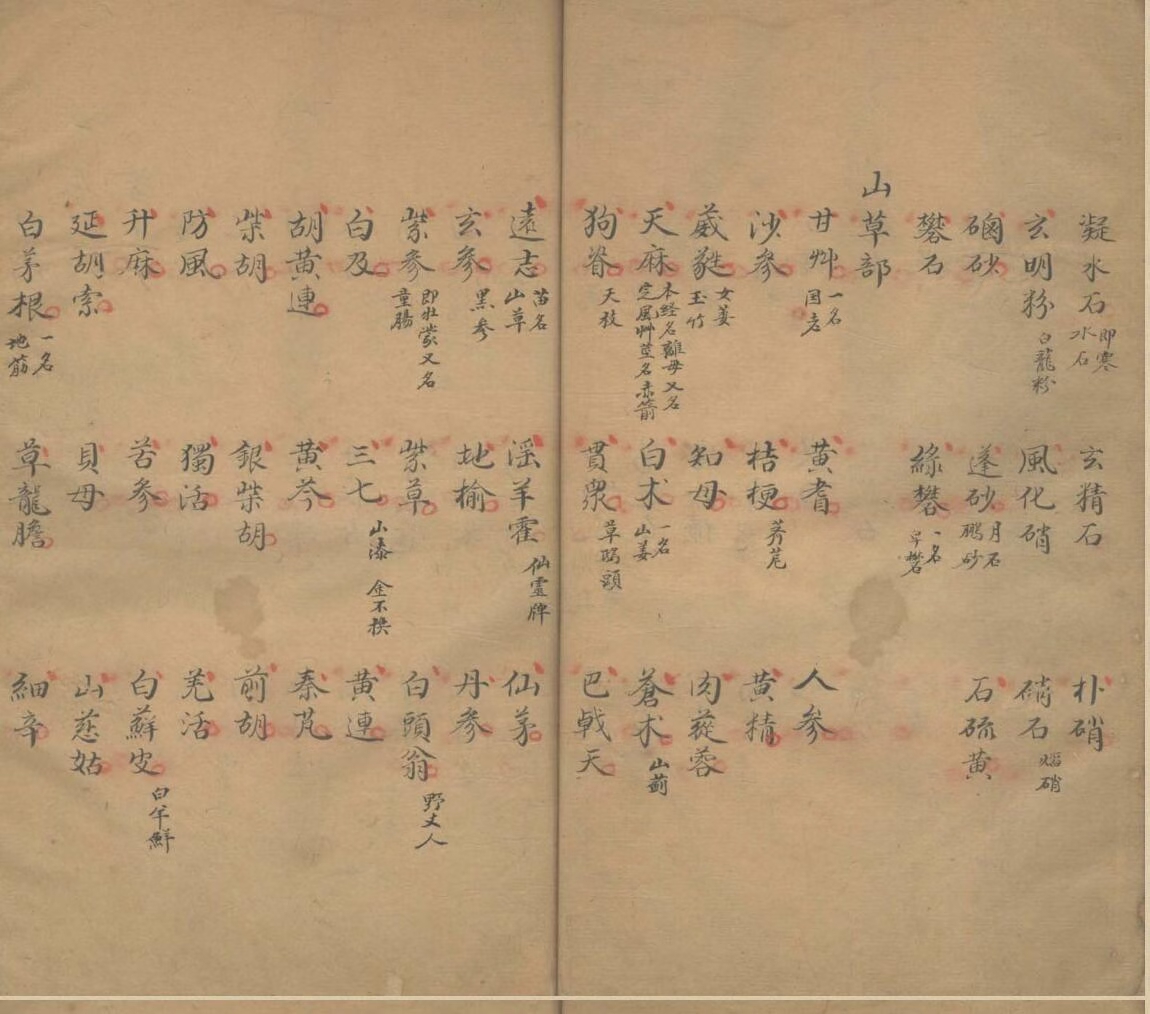 凝水石 即寒水石 玄精石 朴硝
玄明粉 白龍粉 風化硝 硝石 焰硝
硇砂 蓬砂 月石 鵬砂 石硫黄
礬石 綠礬 一名皁礬
山草部
甘艸 一名国老 黄耆 人參
沙參 桔梗 薺苨 黄精
葳蕤 女萎 玉竹 知母 肉蓯蓉
天麻 本经名離母又名定風艸莖名赤箭 白术 一名山姜 蒼术 山薊
狗脊 天 貫衆 草鴟頭 巴戟天
遠志 苗名山草 淫羊霍 仙靈脾 仙茅
玄參 黑参 地榆 丹參
紫參 即牡蒙又名童腸 紫草 白頭翁 野丈人
白及 三七 山漆 金不換 黄連
胡黄連 黄芩 秦艽
柴胡 銀柴胡 前胡
防風 獨活 羌活
升麻 苦參 白蘚皮 白羊鮮
延胡索 貝母 山慈姑
白茅根 一名地筋 草龍膽 細辛